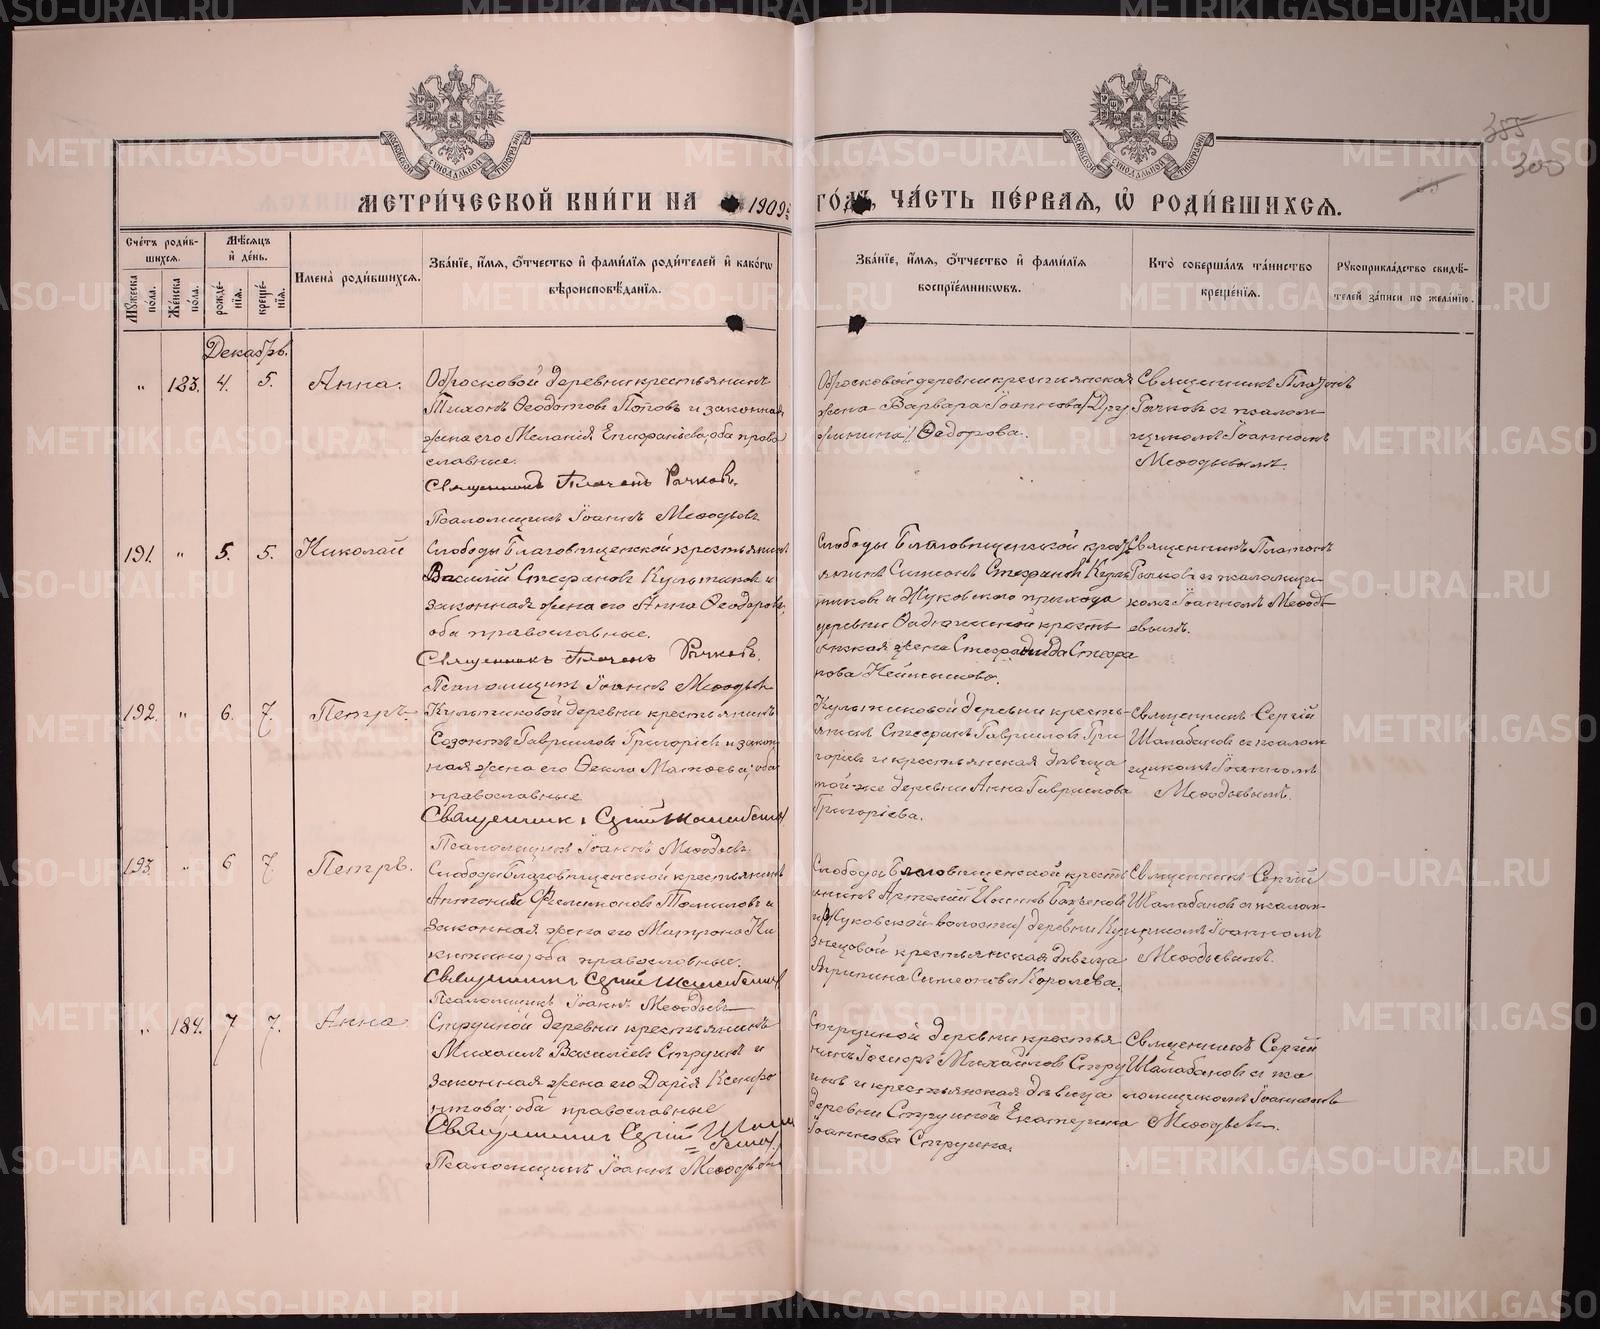 МЕТРИ́ЧЕСКОЙ КНИ́ГИ НА 1909 ГО́ДЪ, ЧА́СТЬ ПЕ́РВАЯ, Ѡ҆ РОДИ́ВШИХСЯ.
355
300
Сче́тъ роди́в-
шихся.
Мѣ́сяцъ
и҆ де́нь.
Му́жеска
по́ла.
Же́нска
по́ла.
рожде́-
нїя.
креще́-
нїя.
И҆мена̀ роди́вшихся.
Зва́нїе, и҆́мя, ѻ҆́тчество и҆ фами́лїя роди́телей и҆ како́гѡ
вѣроисповѣ́данїя.
Зва́нїе, и҆́мя, ѻ҆́тчество и҆ фами́лїя
воспрїе́мниковъ.
Кто̀ соверша́лъ та́инство
креще́нїя.
Рꙋкоприкла́дство свидѣ́-
телей за́писи по жела́нїю.
Декабрь.
" 183. 4. 5. Анна.
Обросковой деревни крестьянинъ
Тихонъ Ѳеодотовъ Поповъ и законная
жена его Меланія Епифаніева, оба право
славные.
Священникъ Платонъ Рычковъ.
Псаломщикъ Іоаннъ Меѳодьевъ
Обросковой деревни крестьянская
жена Варвара Іоаннова (Дру
жинина) Ѳедорова.
Священникъ Платонъ
Рычковъ съ псалом
щикомъ Іоанномъ
Меѳодьевымъ.
191. " 5. 5. Николай
Слободы Благовѣщенской крестьянинъ
Василій Стефановъ Культиковъ и
законная жена его Анна Ѳеодорова,
оба православные.
Священникъ Платонъ Рычковъ.
Псаломщикъ Іоаннъ Меѳодьевъ
Слободы Благовѣщенской кресть
янинъ Симеонъ Стефановъ Куль
тиковъ и Жуковского прихода
деревни кресть
янская жена Стефанида Стефа
нова
Священникъ Платонъ
Рычковъ съ псаломщи
комъ Іоанномъ Меѳодь
евымъ.
192. " 6. 7. Петръ.
Культиковой деревни крестьянинъ
Созонтъ Гавриловъ Григорьевъ и закон
ная жена его Ѳекла Матѳеева; оба
православные
Священникъ Сергій Шалабановъ
Псаломщикъ Іоаннъ Меѳодьевъ.
Культиковой деревни кресть-
янинъ Стефанъ Гавриловъ Гри
горьевъ и крестьянская дѣвица
той-же деревни Анна Гаврилова
Григорьева.
Священникъ Сергій
Шалабановъ съ псалом
щикомъ Іоанномъ
Меѳодьевымъ.
193. " 6 7. Петръ.
Слободы Благовѣщенской крестьянинъ
Антоній Филимоновъ Томиловъ и
законная жена его Матрона Ни
китина; оба православные.
Священникъ Сергій Шалабановъ
Псаломщикъ Іоаннъ Меѳодьевъ
Слободы Благовѣщенской кресть
янинъ Артемій
и (Жуковской волости) деревни Ку
знецовой крестьянская дѣвица
Агрипина Симеонова Королева.
Священникъ Сергій
Шалабановъ съ псалом-
щикомъ Іоанномъ
Меѳодьевымъ.
" 184. 7 7. Анна
Струиной деревни крестьянинъ
Михаилъ Василіевъ Струинъ и
законная жена его Дарія Ксенофо
нтова; оба православные
Священникъ Сергій Шала
бановъ.
Псаломщикъ Іоаннъ Меѳодьевъ
Струиной деревни крестья
нинъ Михайловъ Стру
инъ и крестьянская дѣвица
деревни Струиной Екатерина
Іоаннова Струина.
Священникъ Сергій
Шалабановъ съ пса
ломщикомъ Іоанномъ
Меѳодьевъ.
METRIKI.GASO-URAL.RU